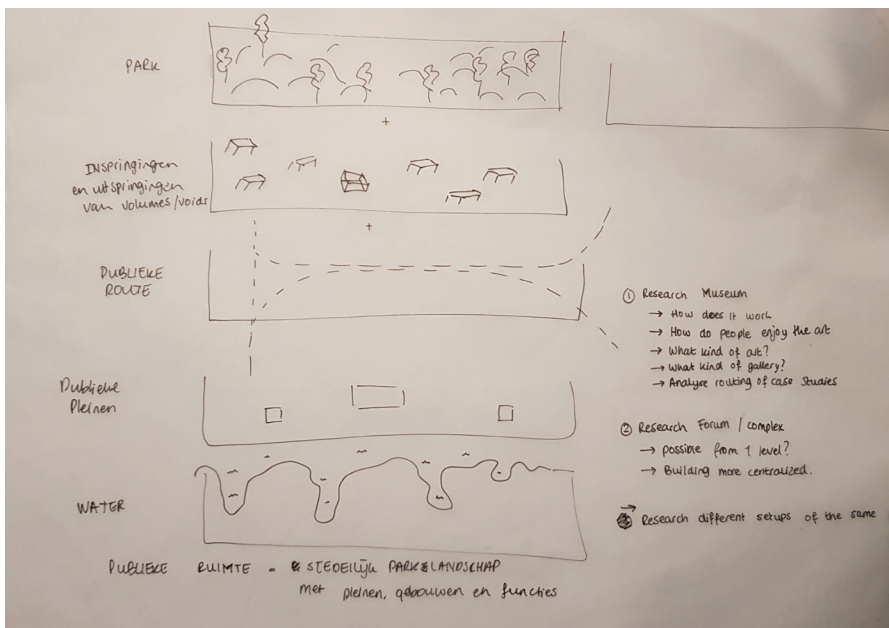 PARK
+
INspringingen
en uitspringingen
van volumes/voids
+
PUBLIEKE
ROUTE
Publieke
Pleinen
WATER
PUBLIEKE RUIMTE = STEDELIJK PARK&LANDSCHAP
met pleinen, gebouwen en functies
① Research Museum
→ How does it work
→ How do people enjoy the art
→ What kind of art?
→ What kind of gallery?
→ Analyse routing of case studies
② Research Forum / complex
→ possible from 1 level?
→ Building more centralized.
→ Research different setups of the same